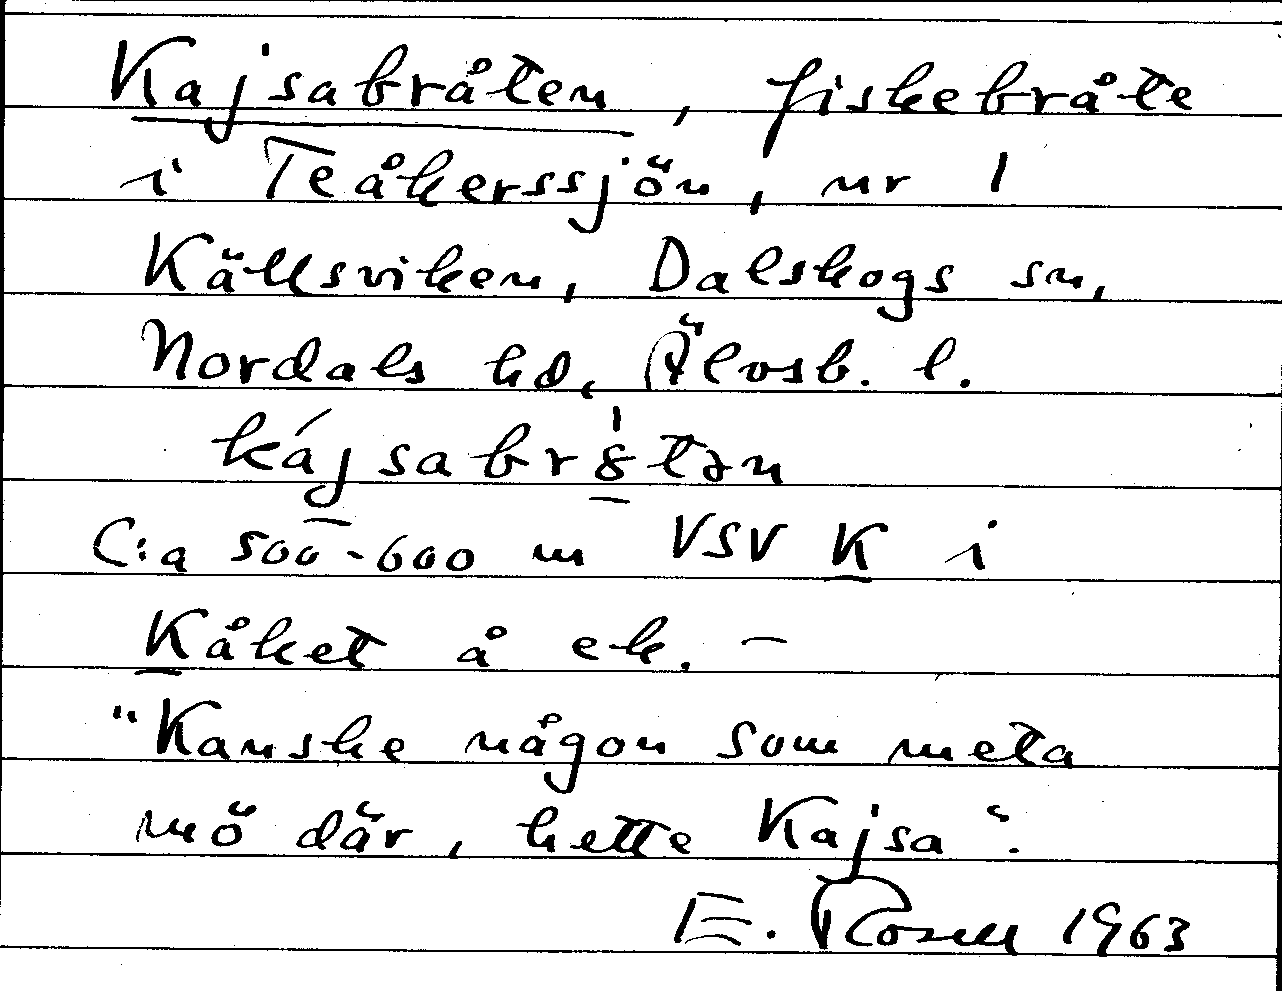 Kajsabråten, fiskebråte
i Teåkerssjön, nr 1
Källsviken, Dalskogs sn,
Nordals hd, Älvsb. l.
"Kanske någon som meta
mö där, hette Kajsa".
C:a 500-600 m VSV K i
Kåket å ek. –
E. Rosell 1963